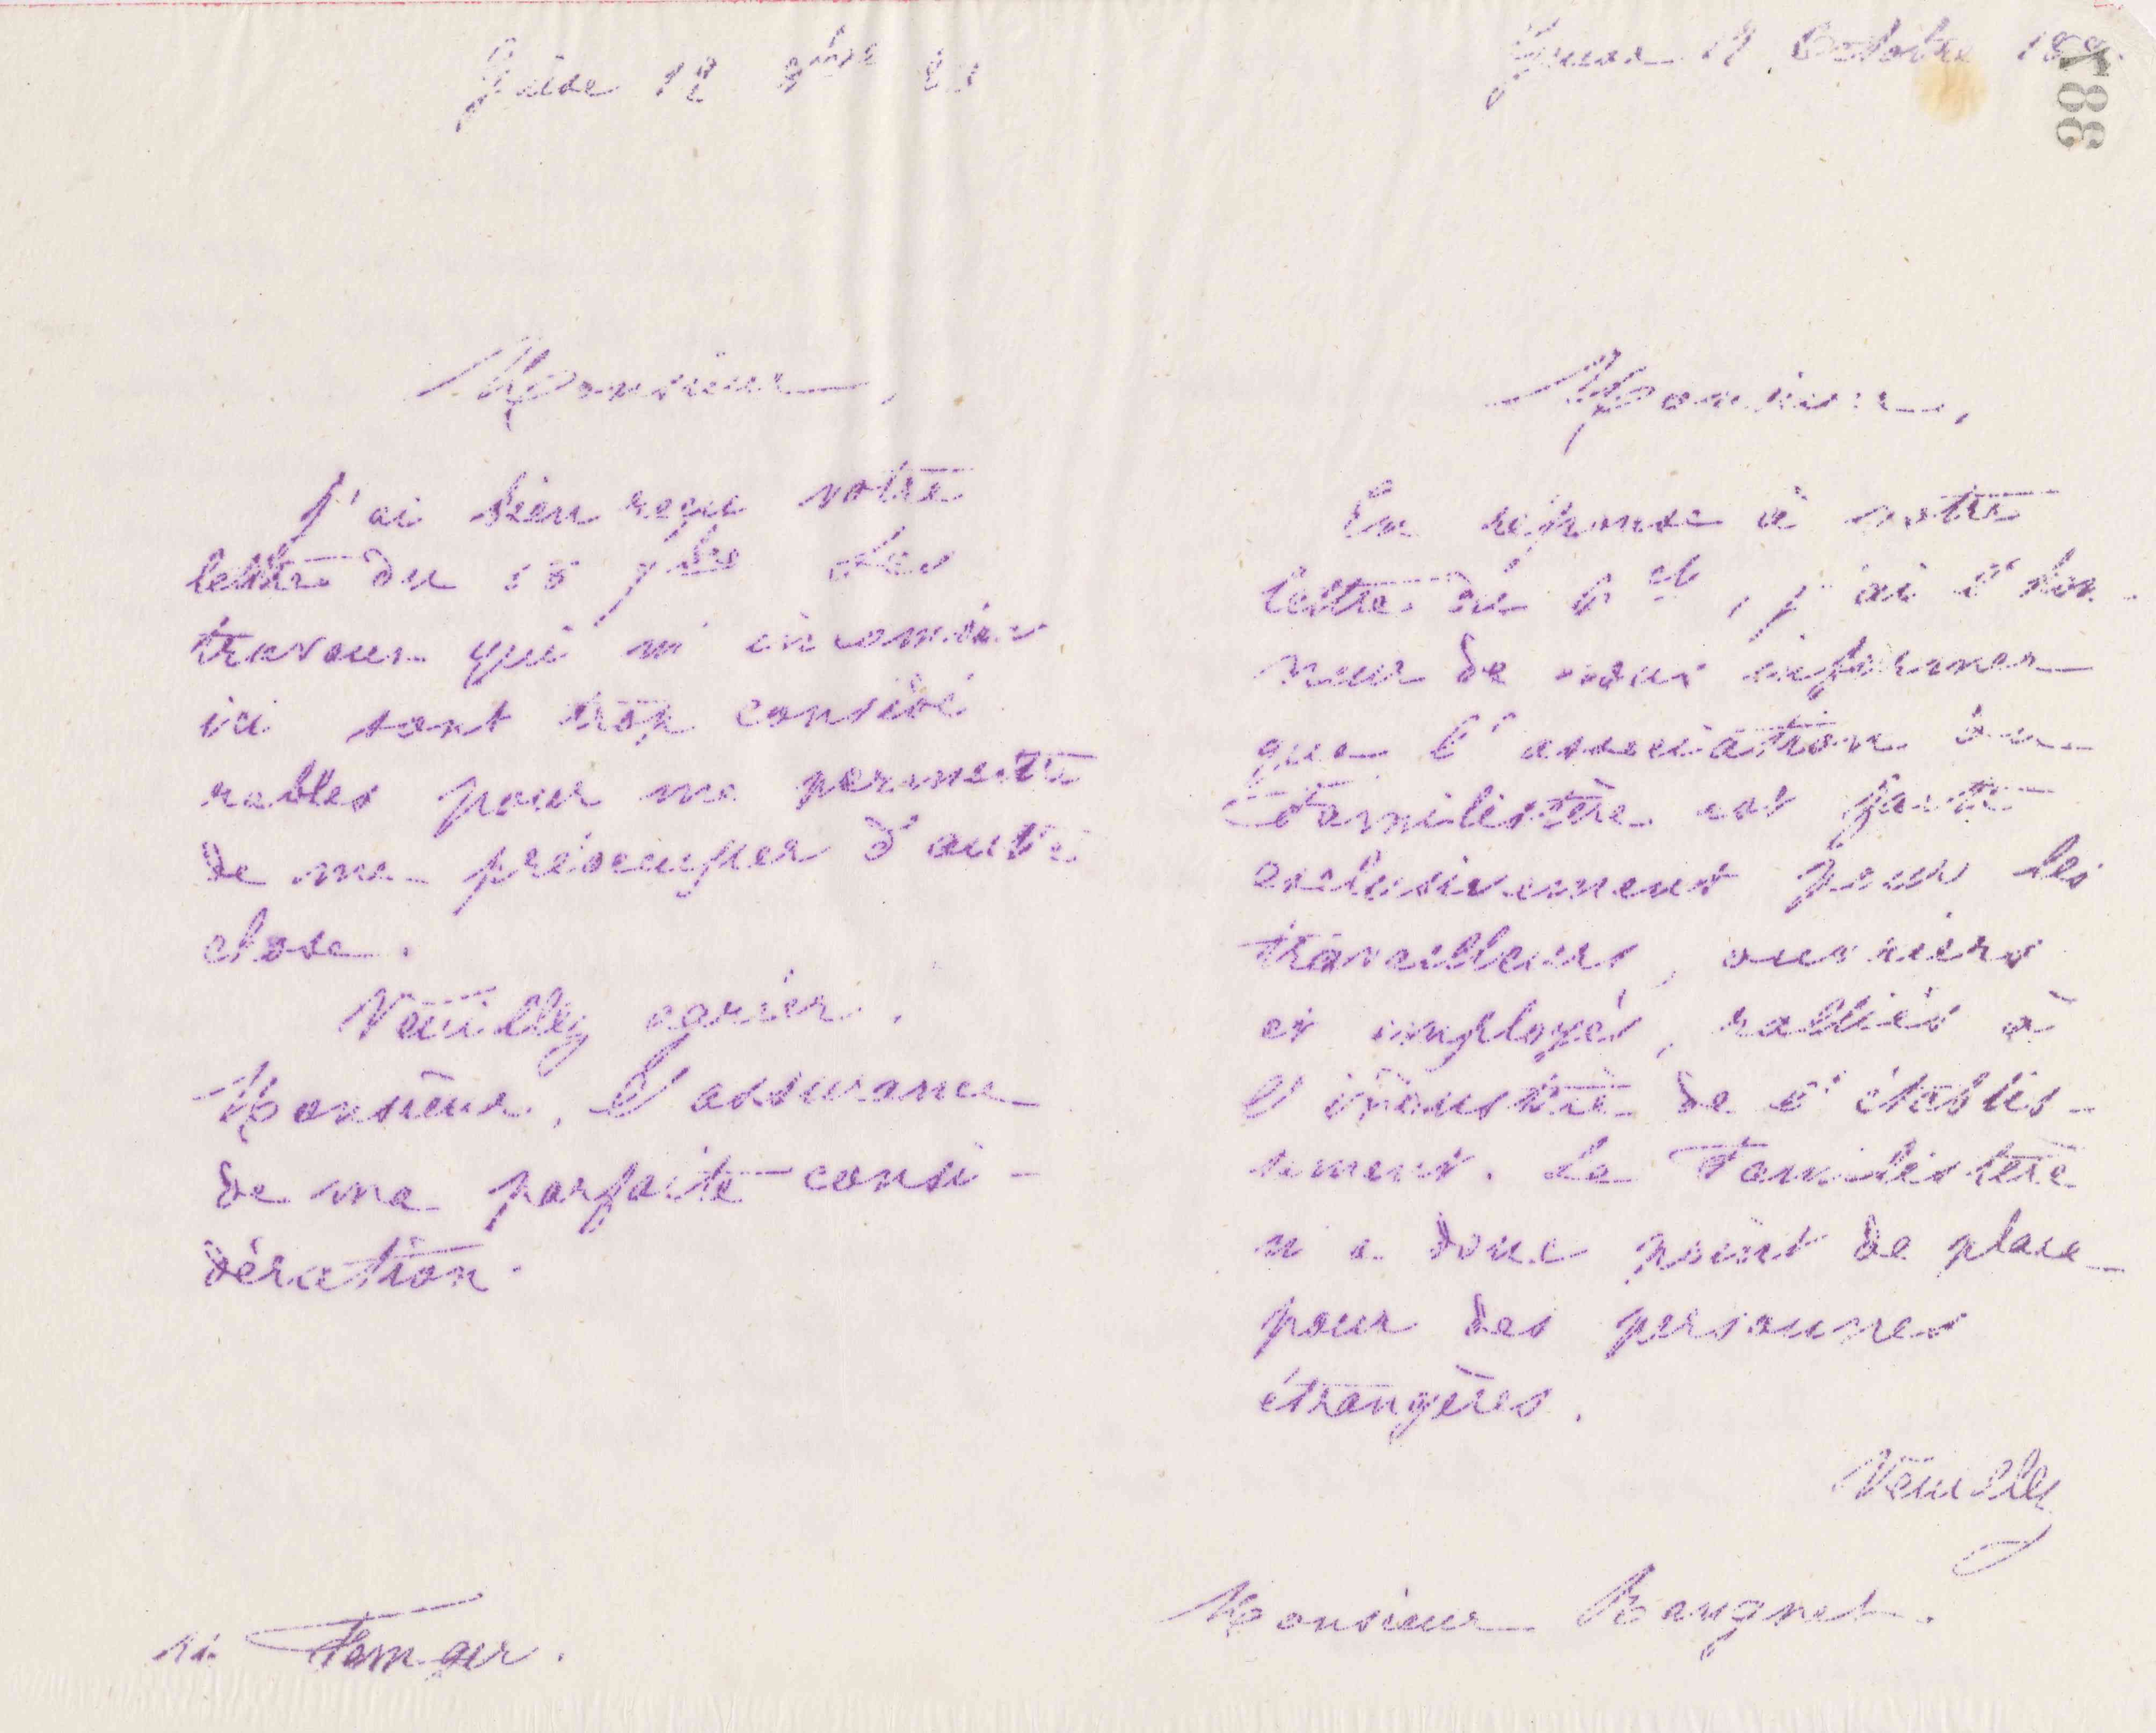 Guise 12 8bre 81
Monsieur,
J'ai bien reçu votre
lettre du 15 7bre Les
travaux qui m'incombent
ici sont trop considé
rables pour me permettre
de me préoccuper d'autre
chose.
Veuillez agréer,
Monsieur, l'assurance
de ma parfaite consi-
dération.
Mr
Guise Octobre
388
Monsieur,
En réponse à votre
lettre du , j'ai l'hon-
neur de vous informer
que l'association du
Familistère est faite
exclusivement pour les
travailleurs, ouvriers
et employés, ralliés à
l'industrie de l'établis-
sement. Le Familistère
n'a donc point de place
pour des personnes
étrangères.
Veuillez
Monsieur